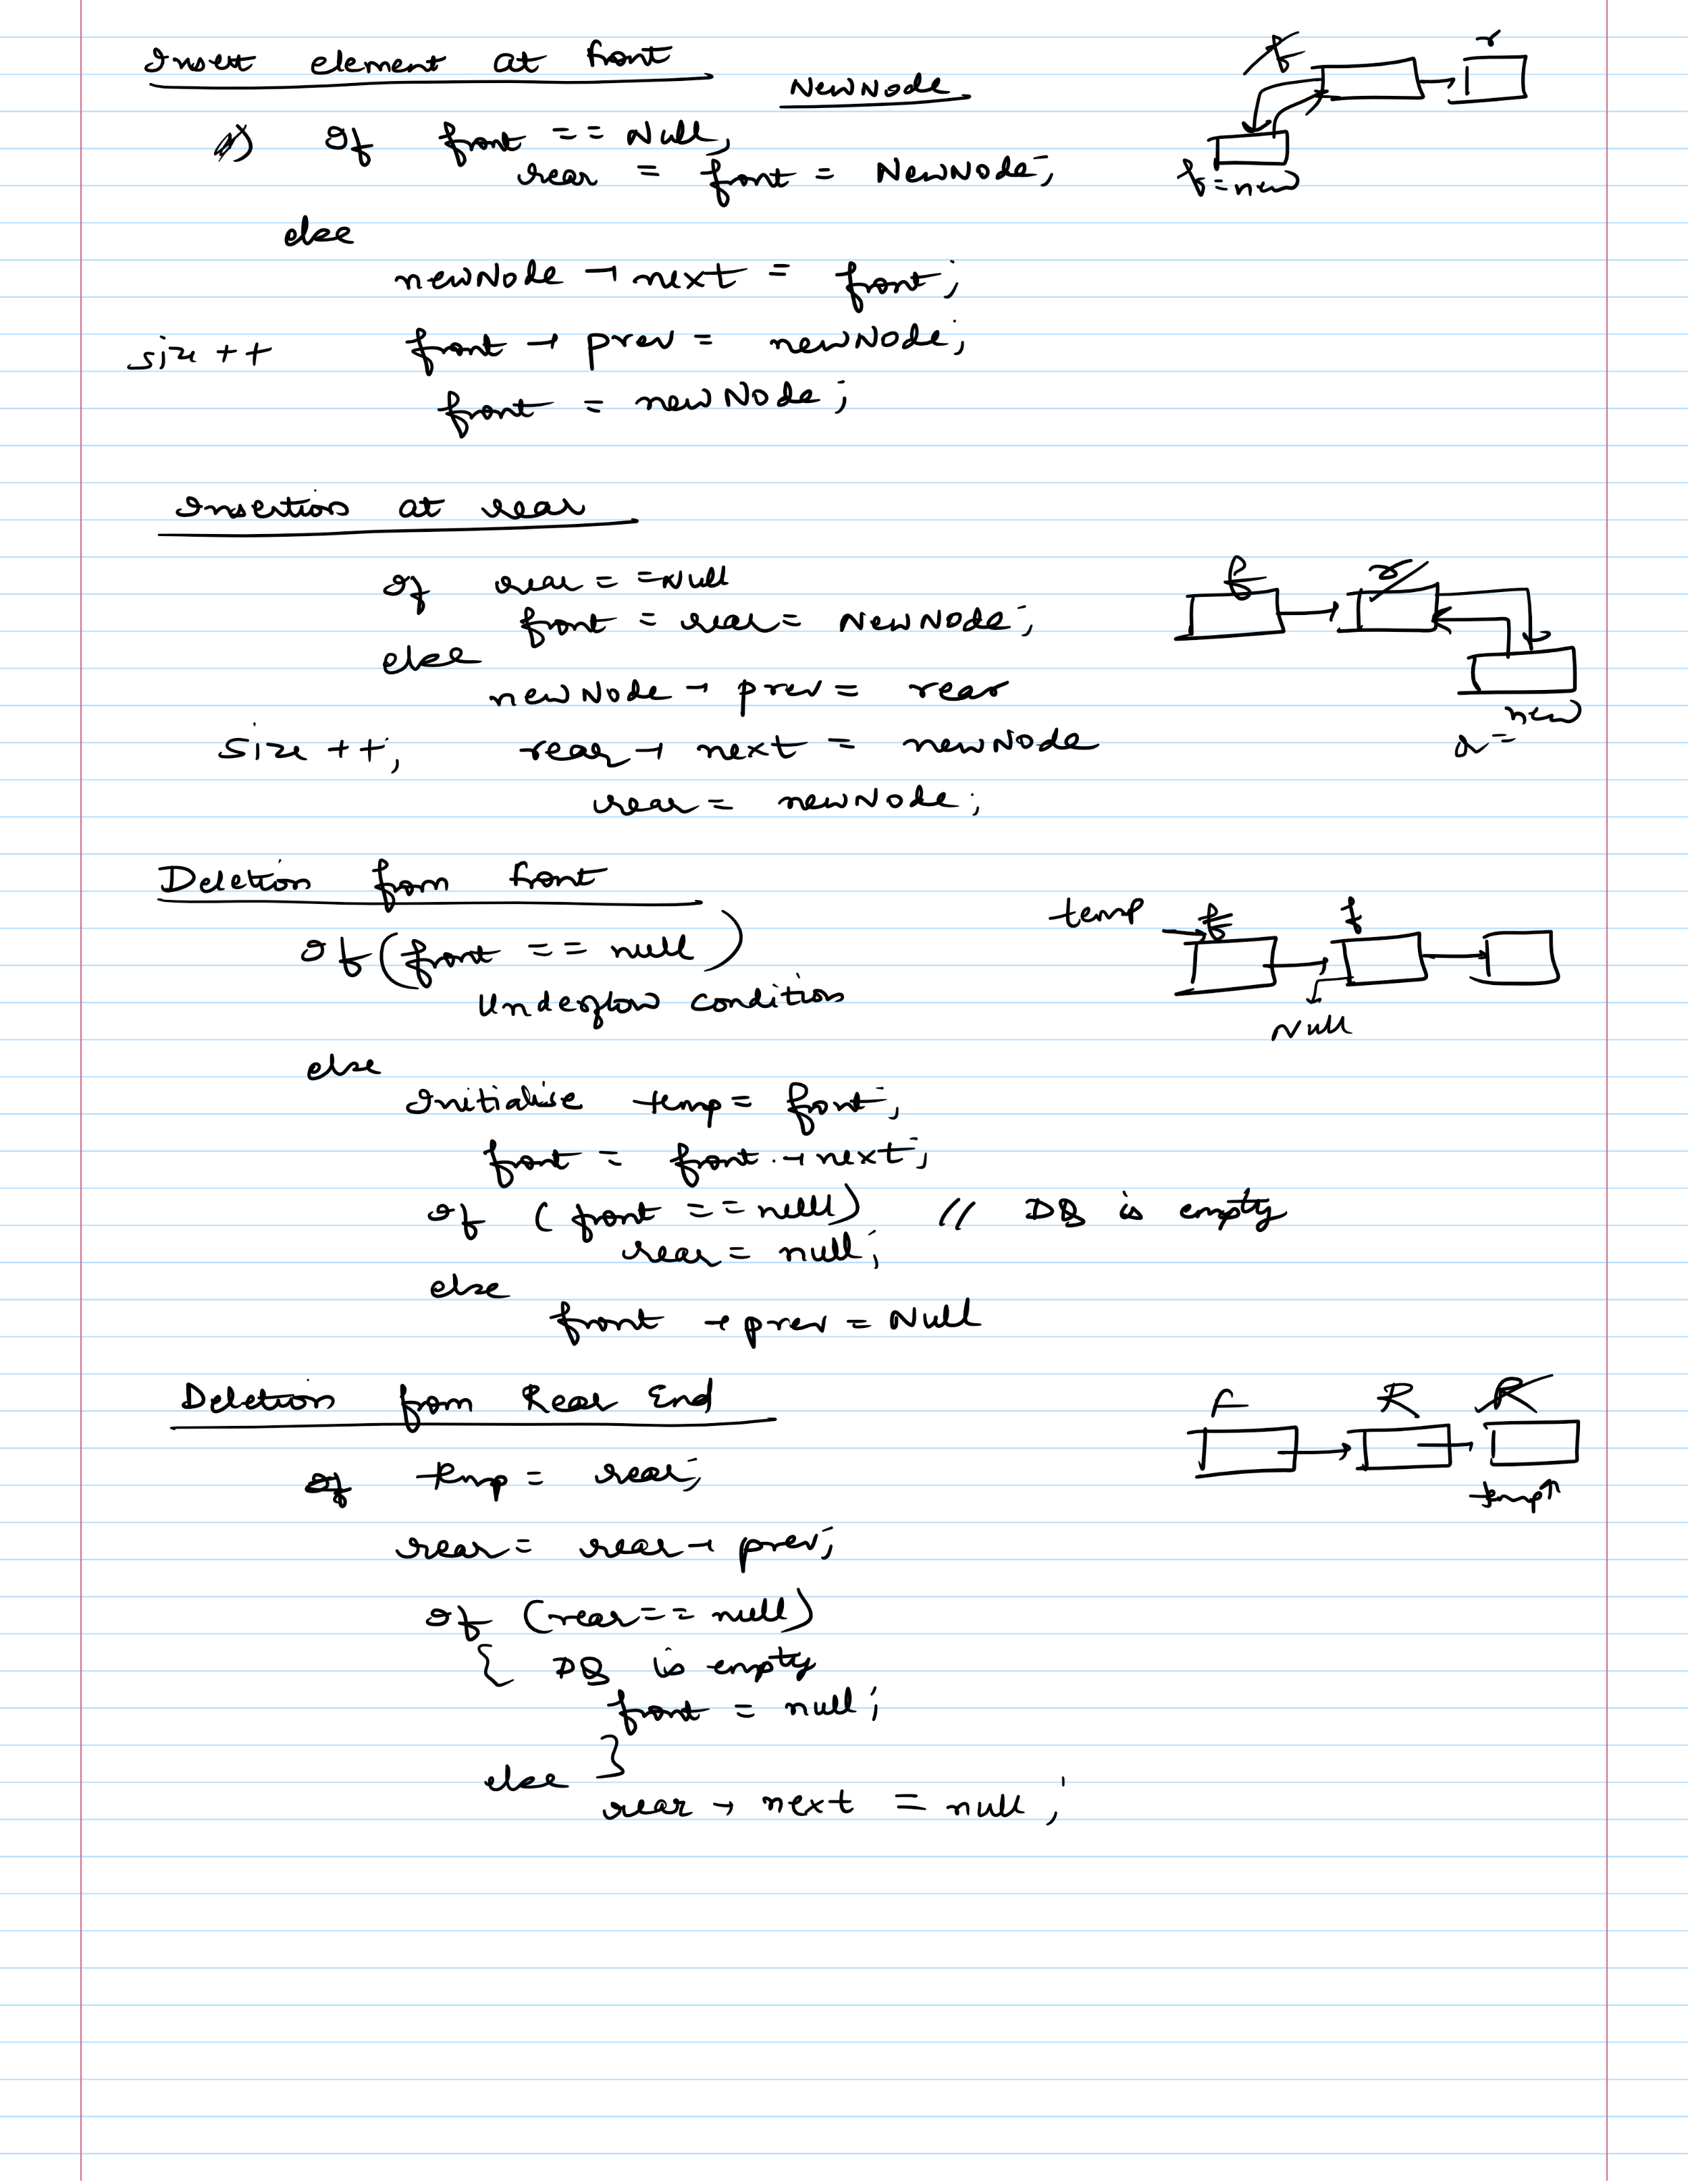 Insert element at front
NewNode
If front == Null,
rear = front = NewNode;
else
newNode → next = front;
size ++ front → prev = newNode;
front = newNode;
f r
f = new
Insertion at rear
If rear == Null
front = rear = NewNode;
else
newNode → prev = rear
size ++; rear → next = newNode
rear = newNode;
f r
new
r =
Deletion from front
If (front == null)
Underflow condition
else
Initialise temp = front;
front = front → next;
If (front == null) // DQ is empty
rear = null;
else
front → prev = Null
temp f f
Null
Deletion from Rear End
temp = rear;
rear = rear → prev;
If (rear == null)
{ DQ is empty
front = null;
}
else
rear → next = null;
F R R
temp↑